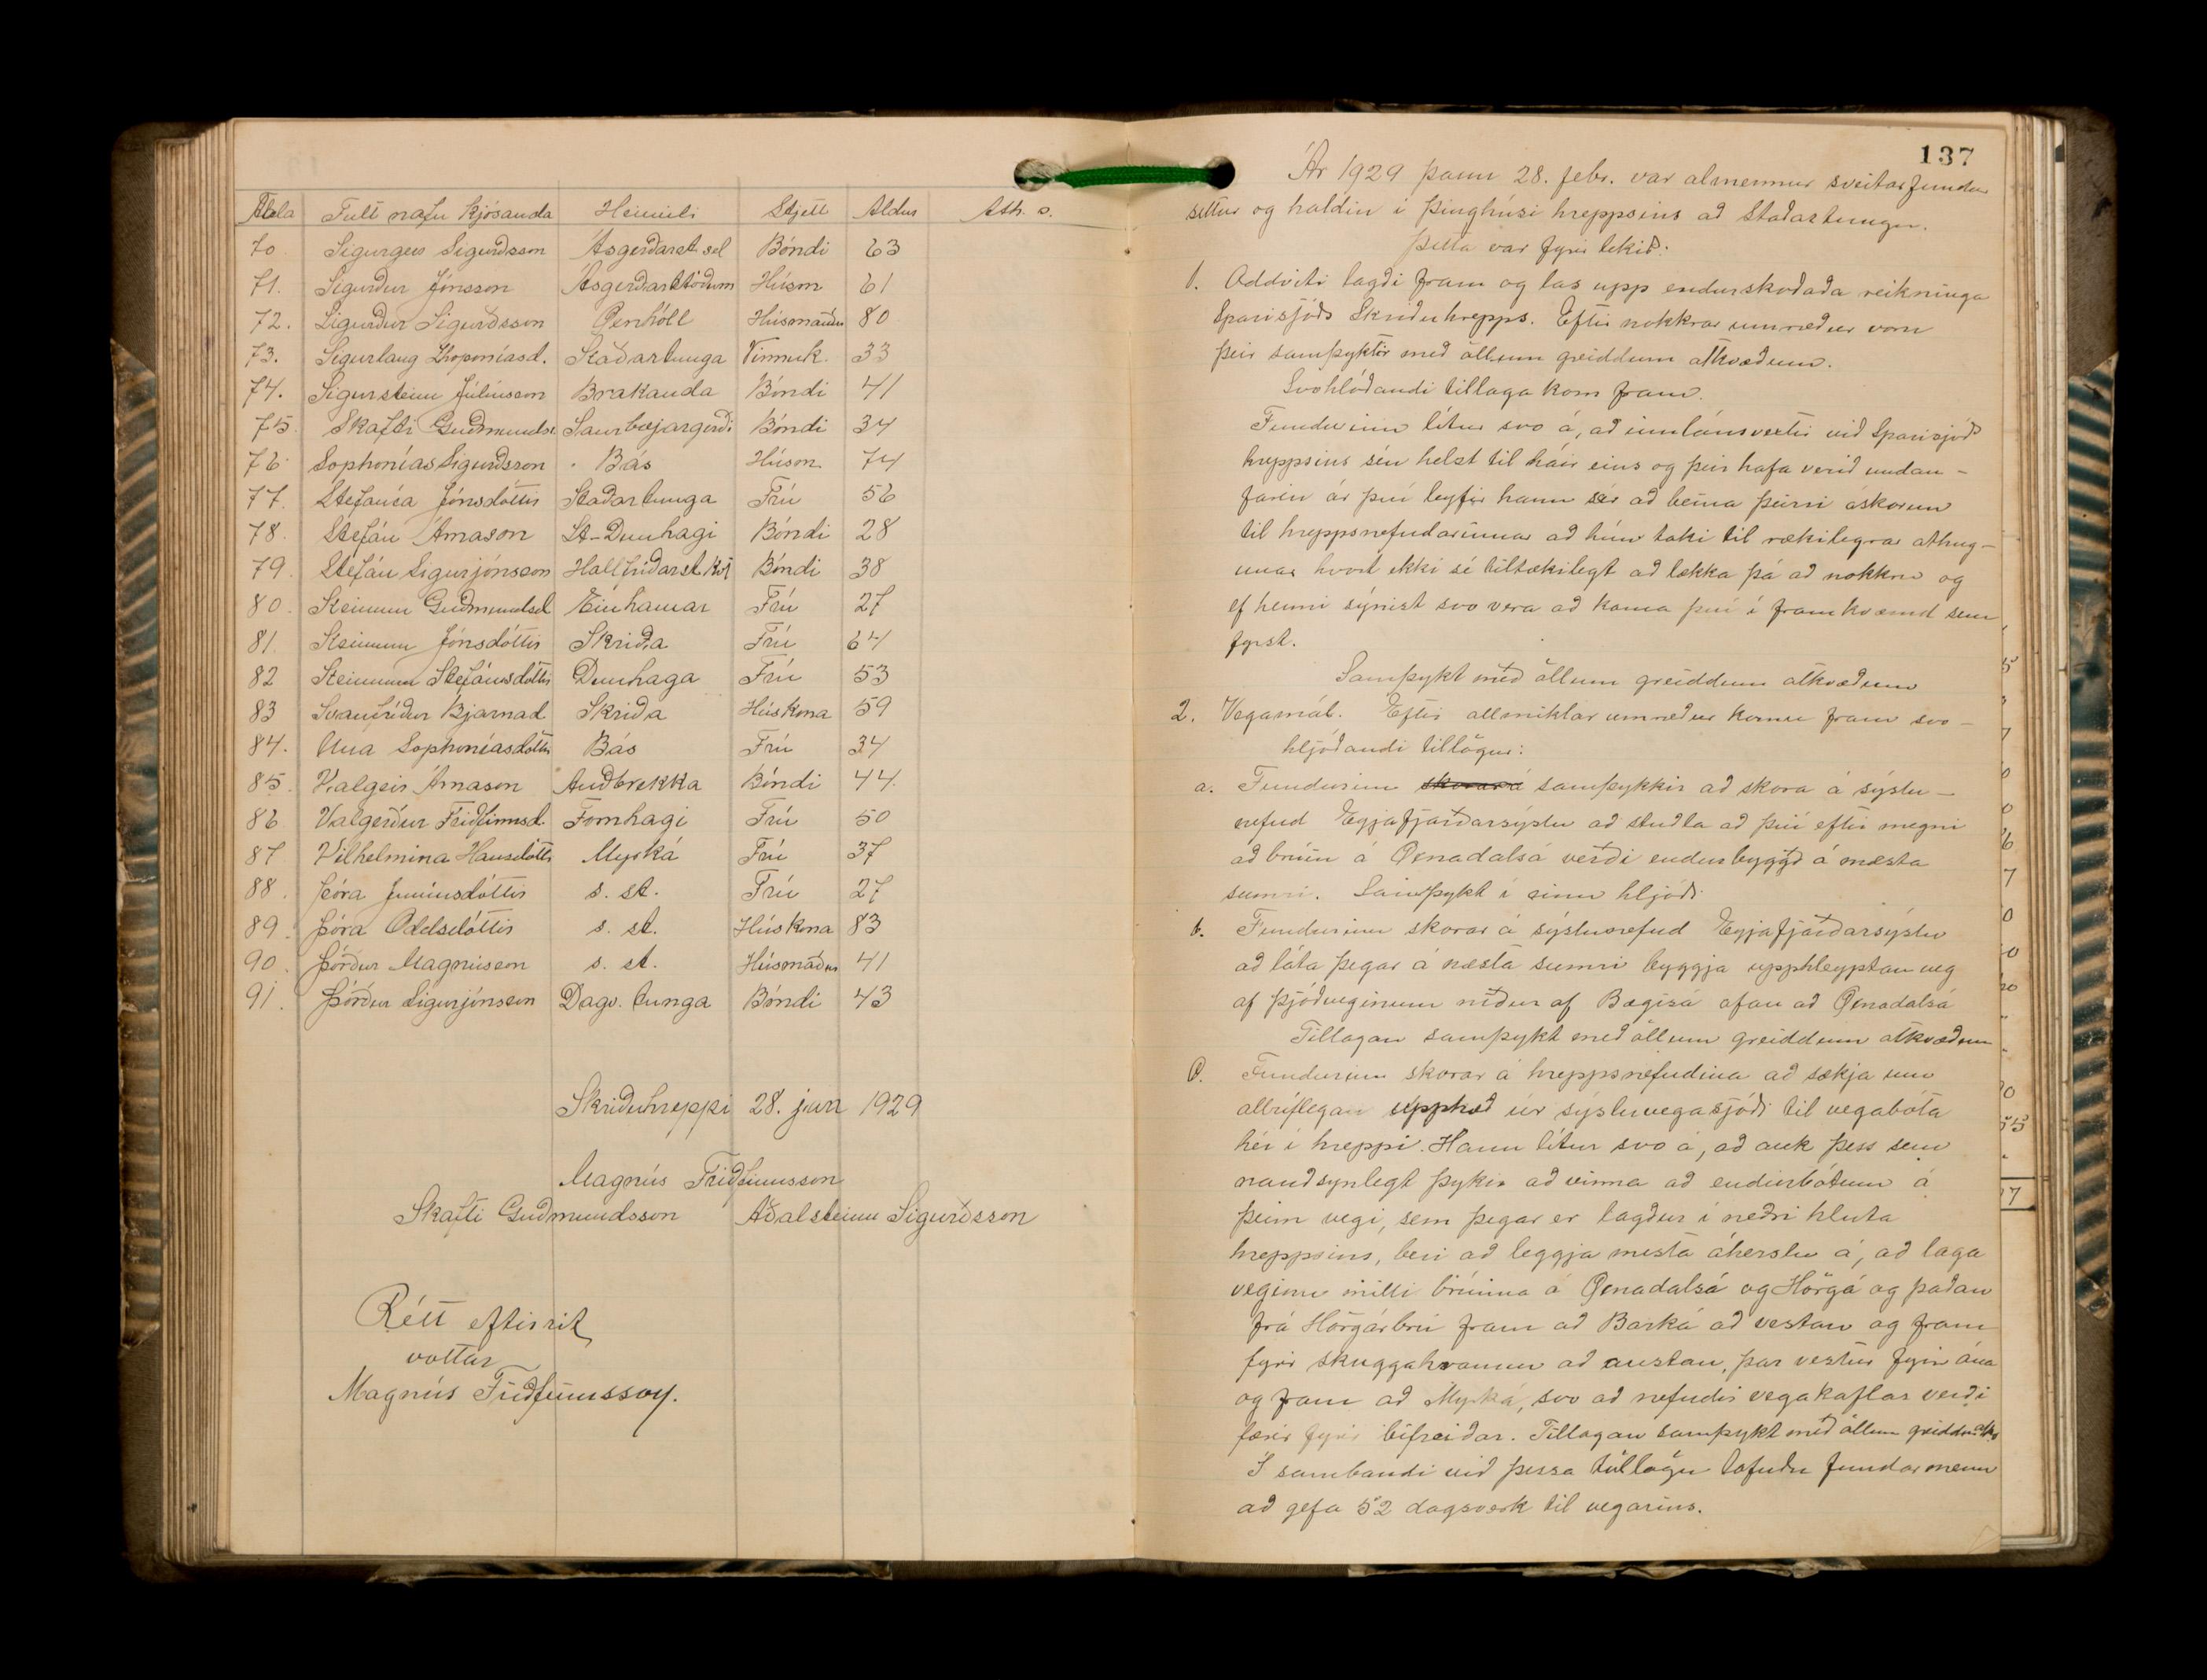 Tala Fullt nafn kjósanda Heimili Stjett Aldur Ath. s.
70. Sigurgeir Sigurðsson Ásgerðarst. sel Bóndi 63
71. Sigurður Jónsson Ásgerðarstöðum Húsm 61
72. Sigurður Sigurðsson Öxnhóll Húsmaður 80
73. Sigurlaug Zhoponíasd. Staðartunga Vinnuk. 33
74. Sigursteinn Júlíusson Brakanda Bóndi 41
75. Skafti Guðmundss Saurbæjargerði Bóndi 34
76. Sophonías Sigurðsson Bás Húsm. 74
77. Stefanía Jónsdóttir Staðartunga Frú 56
78. Stefán Árnason St-Dunhagi Bóndi 28
79. Stefán Sigurjónsson Hallfríðarst.kot Bóndi 38
80. Steinunn Guðmundsd Einhamar Frú 27
81. Steinunn Jónsdóttir Skriða Frú 64
82 Steinunn Stefánsdóttir Dunhaga Frú 53
83 Svanfríður Bjarnad Skriða Húskona 59
84. Una Sophoníasdóttir Bás Frú 34
85. Valgeir Árnason Auðbrekka Bóndi 44
86. Valgerður Friðfinnsd. Fornhagi Frú 50
87. Vilhelmina Hansdóttir Myrká Frú 37
88. Þóra Júníusdóttir s. st. Frú 27
89. Þóra Oddsdóttir s. st. Húskona 83
90. Þórður Magnússon s. st. Húsmaður 41
91. Þórður Sigurjónsson Dagv. tunga Bóndi 43
Skriðuhreppi 28. jan 1929
Magnús Friðfinnsson
Skafti Guðmundsson Aðalsteinn Sigurðsson
Rétt eftirrit
vottar
Magnús Friðfinnsson.
137
Ár 1929 þann 28. febr. var almennur sveitarfundur
settur og haldin í þinghúsi hreppsins að Staðartungu.
Þetta var fyrir tekið:
1. Oddviti lagði fram og las upp endurskoðaða reikninga
Sparisjóðs Skriðuhrepps. Eftir nokkrar umræður voru
þeir samþyktir með öllum greiddum atkvæðum.
Svohlóðandi tillaga kom fram.
Fundurinn lítur svo á, að innlánsvextir við Sparisjóð
hreppsins séu helst til háir eins og þeir hafa verið undan-
farin ár því leyfir hann sér að beina þeirri áskorun
til hreppsnefndarinnar að hún taki til rækilegrar athug-
unar hvort ekki sé tiltækilegt að lækka þá að nokkru og
ef henni sýnist svo vera að koma því í framkvæmd sem
fyrst.
Samþykt með öllum greiddum atkvæðum
2. Vegamál. Eftir allmiklar umræður komu fram svo-
hljóðandi tillögur:
a. Fundurinn skorar á samþykkir að skora á sýslu-
nefnd Eyjafjarðarsýslu að stuðla að því eftir megni
að brúin á Öxnadalsá verði endurbyggð á næsta
sumri. Samþykt í einu hljóði
b. Fundurinn skorar á sýslunefnd Eyjafjarðarsýslu
að láta þegar á næsta sumri byggja upphleyptan veg
af þjóðveginum niður af Bægisá ofan að Öxnadalsá
Tillagan samþykt með öllum greiddum atkvæðum
C. Fundurinn skorar á hreppsnefndina að sækja um
allríflegan upphæð úr sýsluvegasjóði til vegabóta
hér í hreppi. Hann lítur svo á, að auk þess sem
nauðsynlegt þykir að vinna að endurbótum á
þeim vegi, sem þegar er lagður í neðri hluta
hreppsins, beri að leggja mesta áherslu á, að laga
veginn milli brúnna á Öxnadalsá og Hörgá og þaðan
frá Hörgárbrú fram að Barká að vestan og fram
fyrir skuggahvamm að austan, þar vestur fyrir ána
og fram að Myrká, svo að nefndir vegakaflar verði
færir fyrir bifreiðar. Tillagan samþykt með öllum greiddum atkv
Í sambandi við þessa tillögu lofuðu fundarmenn
að gefa 52 dagsverk til vegarins.